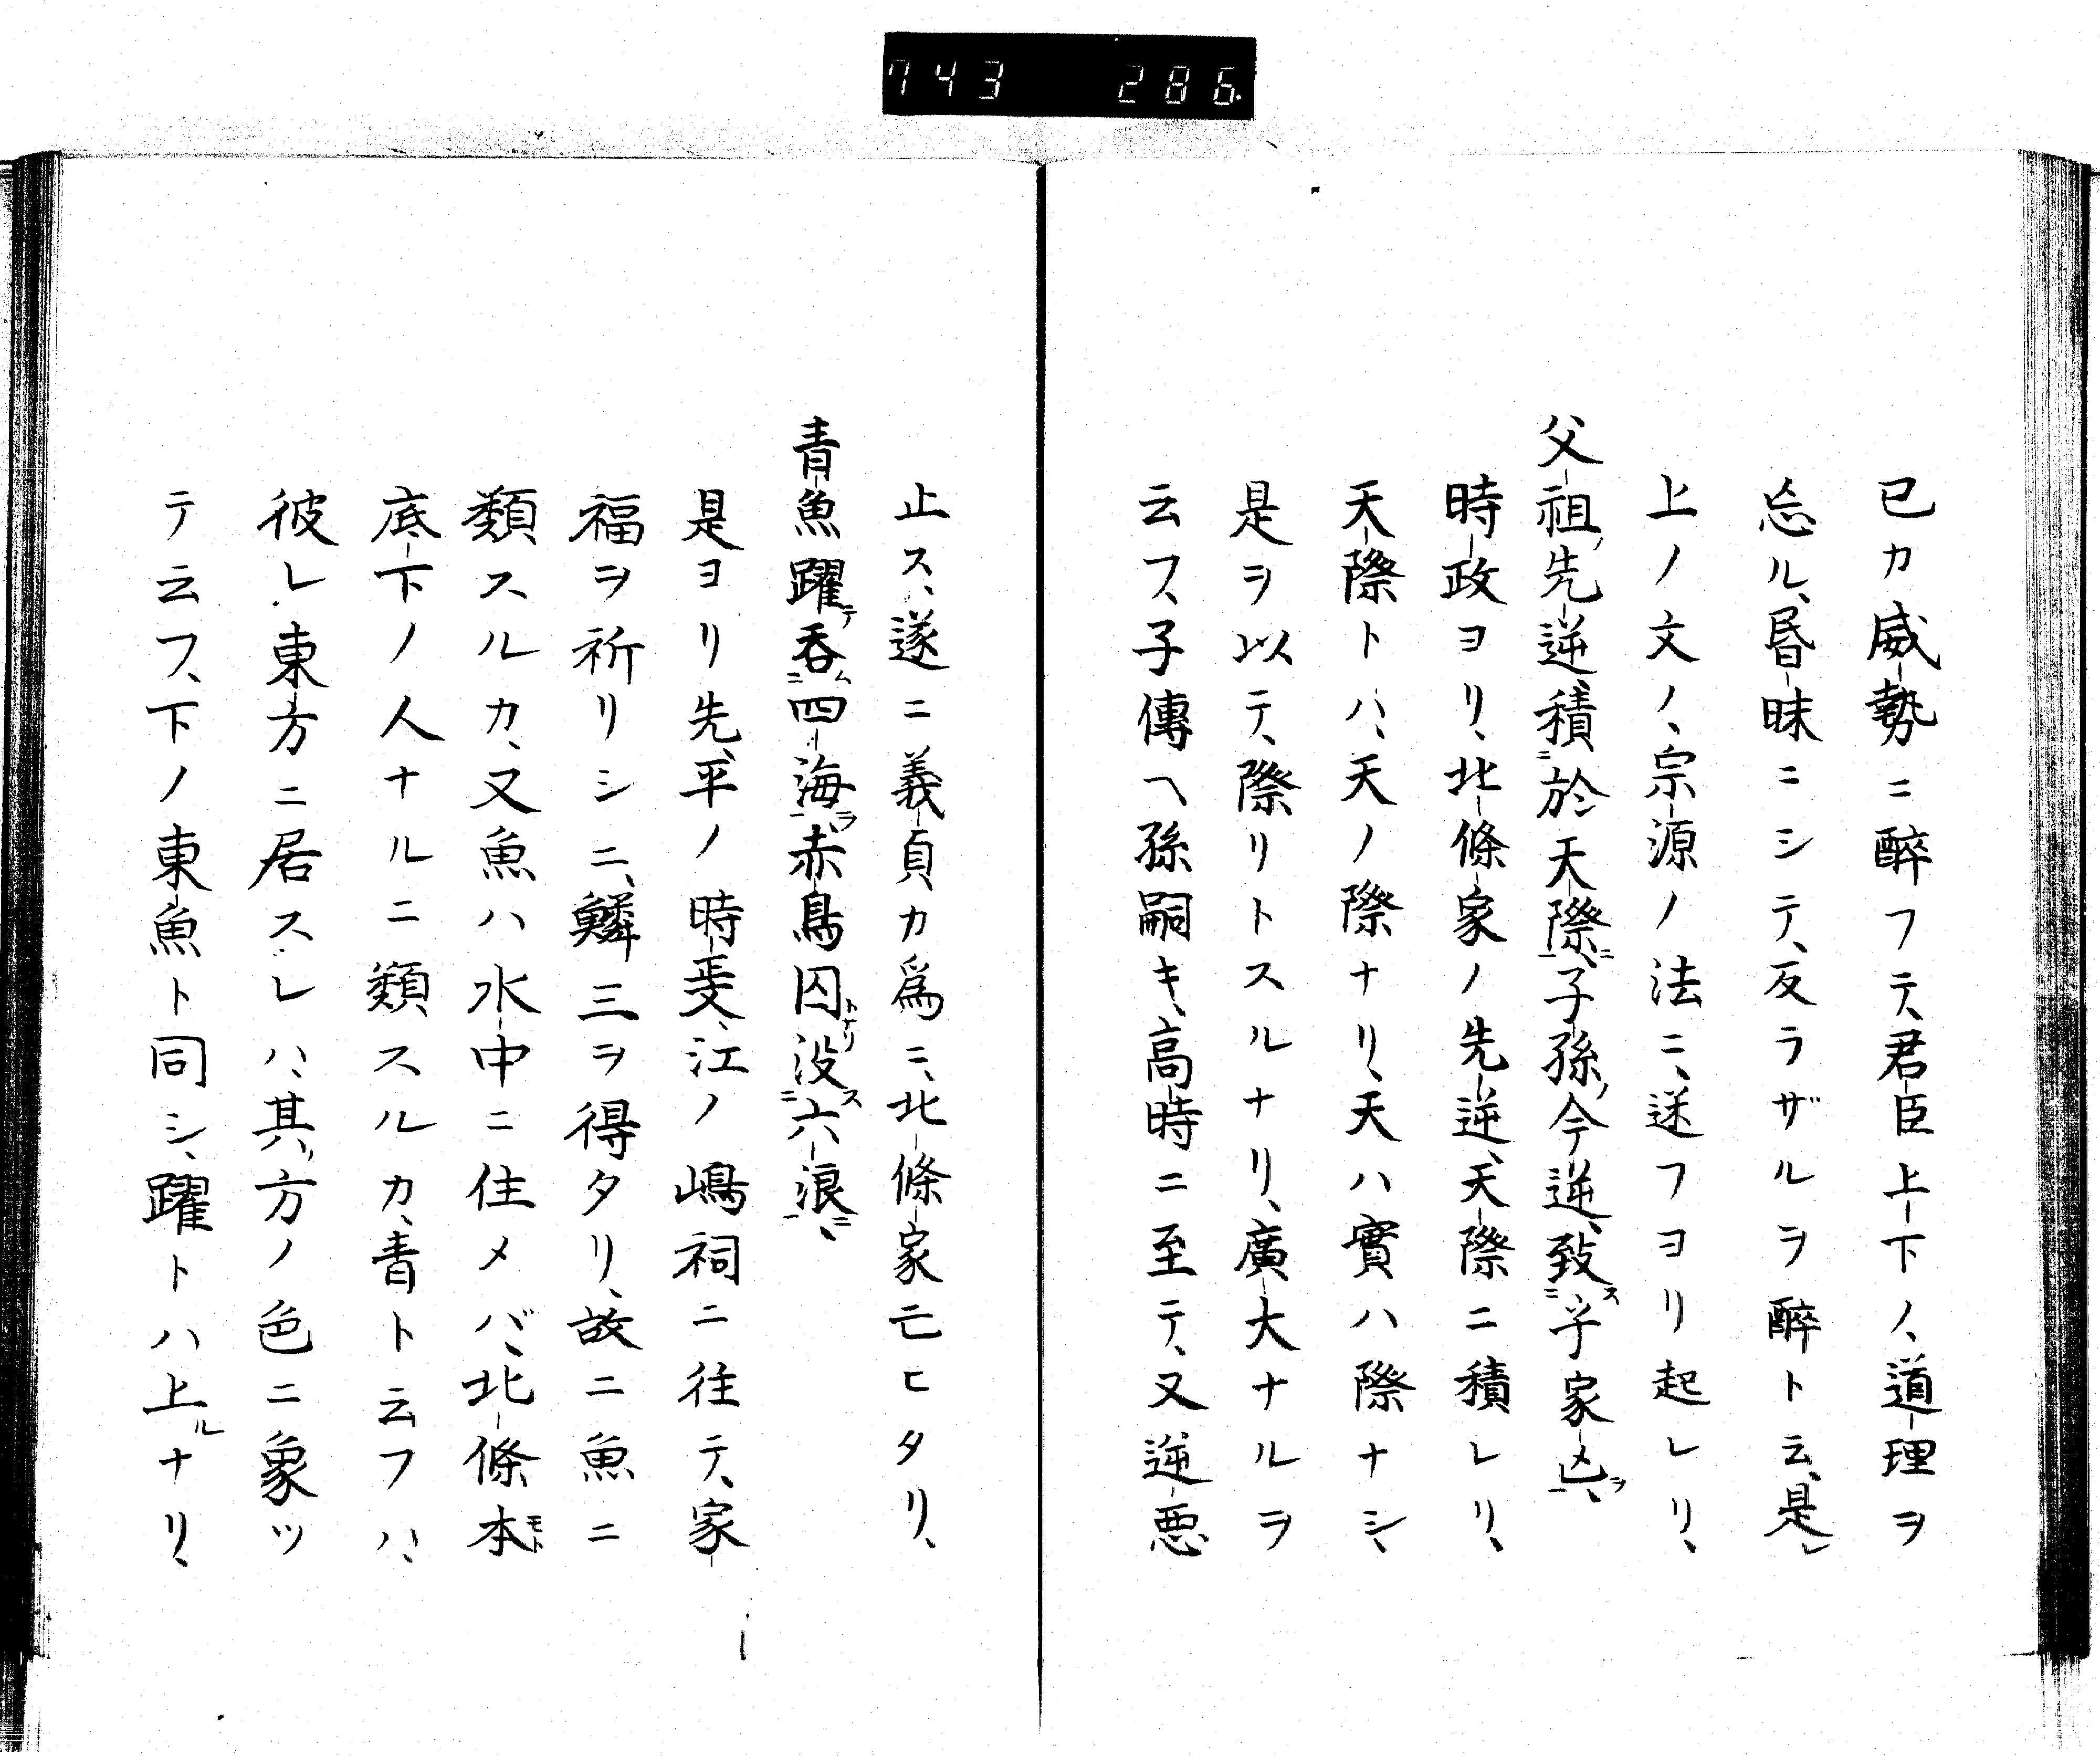 743 286
已カ威勢ニ醉フテ、君臣上下ノ、道理ヲ
忘ル、昏昧ニシテ、反ラザルヲ醉ト云、是レ
上ノ文ノ、宗源ノ法ニ、迷フヨリ起レリ、
父祖ノ先逆、積於天際ニ、子孫ノ今逆、致ス子家亡ヲ、
時政ヨリ、北條家ノ先逆、天際ニ積レリ、
天際トハ、天ノ際ナリ、天ハ實ハ際ナシ、
是ヲ以テ、際リトスルナリ、廣大ナルヲ
云フ、子傳ヘ孫嗣キ、高時ニ至テ、又逆悪
止ス、遂ニ義貞カ爲ニ、北條家亡ヒタリ、
青魚躍テ呑ム四海ヲ、赤鳥囚トナリ没ス六浪ニ、
是ヨリ先、平ノ時政、江ノ嶋祠ニ往テ、家
福ヲ祈リシニ、鱗三ヲ得タリ、故ニ魚ニ
類スルカ、又魚ハ水中ニ住メバ、北條本モト
底下ノ人ナルニ類スルカ、青ト云フハ、
彼レ東方ニ居スレハ、其ノ方ノ色ニ象ツ
テ云フ、下ノ東魚ト同シ、躍トハ上ルナリ、